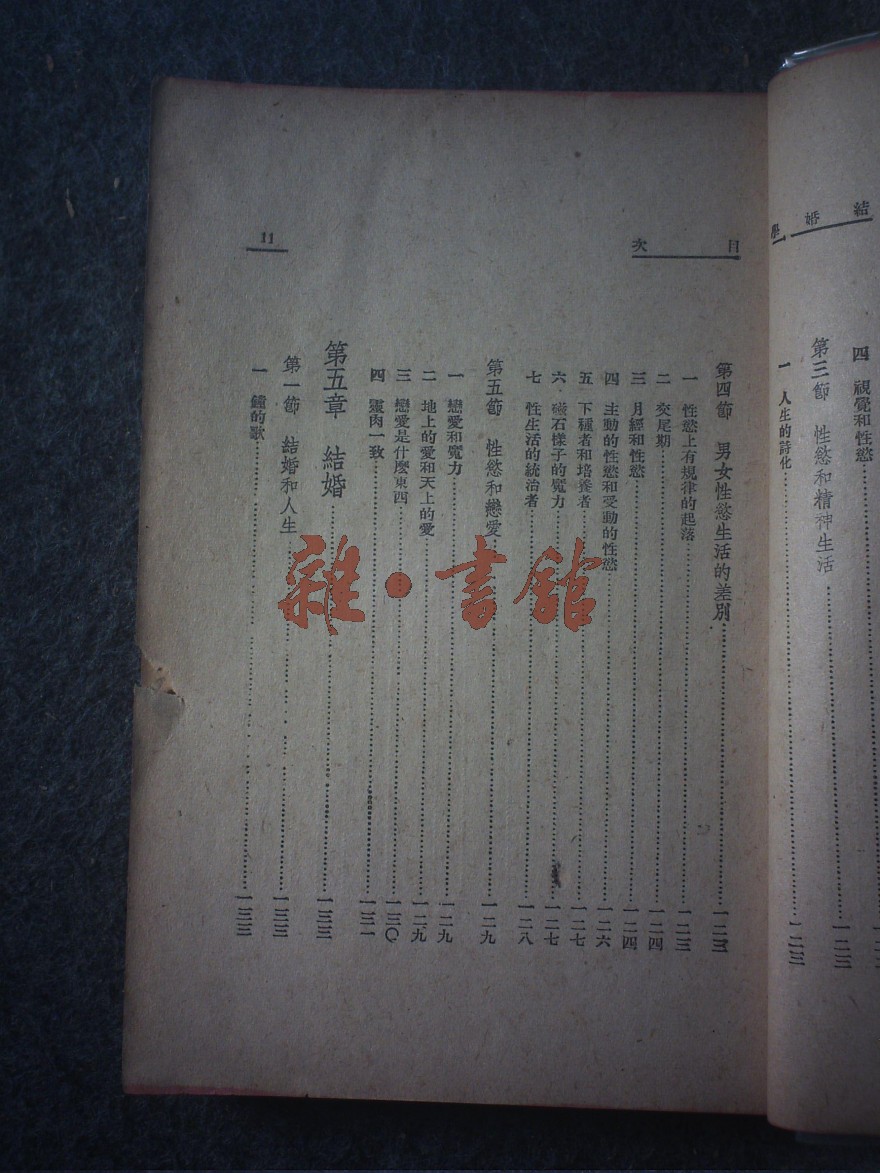 結婚學
四　視覺和性慾
第三節　性慾和精神生活……一二三
一　人生的詩化……一二三
目次
11
第四節　男女性慾生活的差別……一二三
一　性慾上有規律的起落……一二三
二　交尾期……一二四
三　月經和性慾……一二四
四　主動的性慾和受動的性慾……一二六
五　下種者和培養者……一二七
六　磁石樣子的魔力……一二七
七　性生活的統治者……一二八
第五節　性慾和戀愛……一二九
一　戀愛和魔力……一二九
二　地上的愛和天上的愛……一二九
三　戀愛是什麼東西……一三〇
四　靈肉一致……一三一
第五章　結婚……一三三
第一節　結婚和人生……一三三
一　鐘的歌……一三三
雜·書館